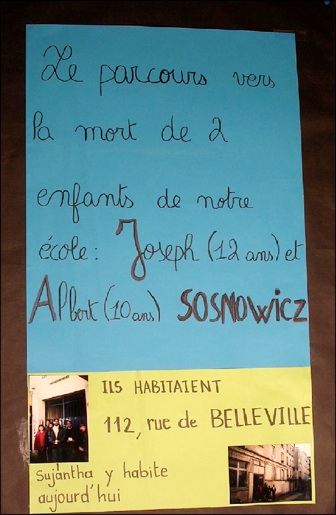 Le parcours vers
la mort de 2
enfants de notre
école : Joseph (12 ans) et
Albert (10 ans) SOSNOWICZ
ILS HABITAIENT
112, rue de BELLEVILLE
Sujantha y habite
aujourd'hui